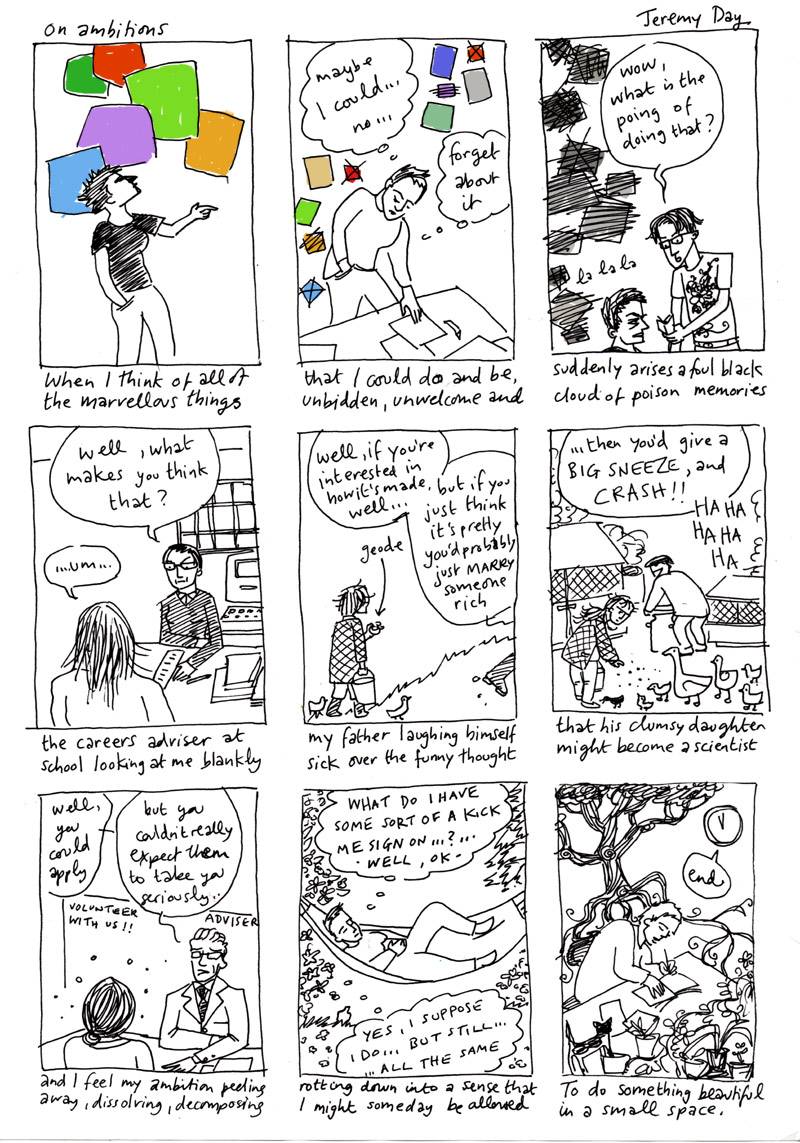 on ambitions
Jeremy Day
When I think of all of
the marvellous things
maybe
I could...
no...
forget
about
it
that I could do and be,
unbidden, unwelcome and
wow,
what is the
poing of
doing that?
la la la
suddenly arises a foul black
cloud of poison memories
well, what
makes you think
that?
...um...
the careers adviser at
school looking at me blankly
well, if you're
interested in
how it's made,
well...
but if you
just think
it's pretty
you'd probably
just MARRY
someone
rich
geode
my father laughing himself
sick over the funny thought
...then you'd give a
BIG SNEEZE, and
CRASH!!
HA HA
HA HA
HA
that his clumsy daughter
might become a scientist
well,
you
could
apply
but you
couldn't really
expect them
to take you
seriously..
VOLUNTEER
WITH US!!
ADVISER
and I feel my ambition peeling
away, dissolving, decomposing
WHAT DO I HAVE
SOME SORT OF A KICK
ME SIGN ON...?...
- WELL, OK -
YES, I SUPPOSE
I DO... BUT STILL...
... ALL THE SAME
rotting down into a sense that
I might someday be allowed
end
To do something beautiful
in a small space.